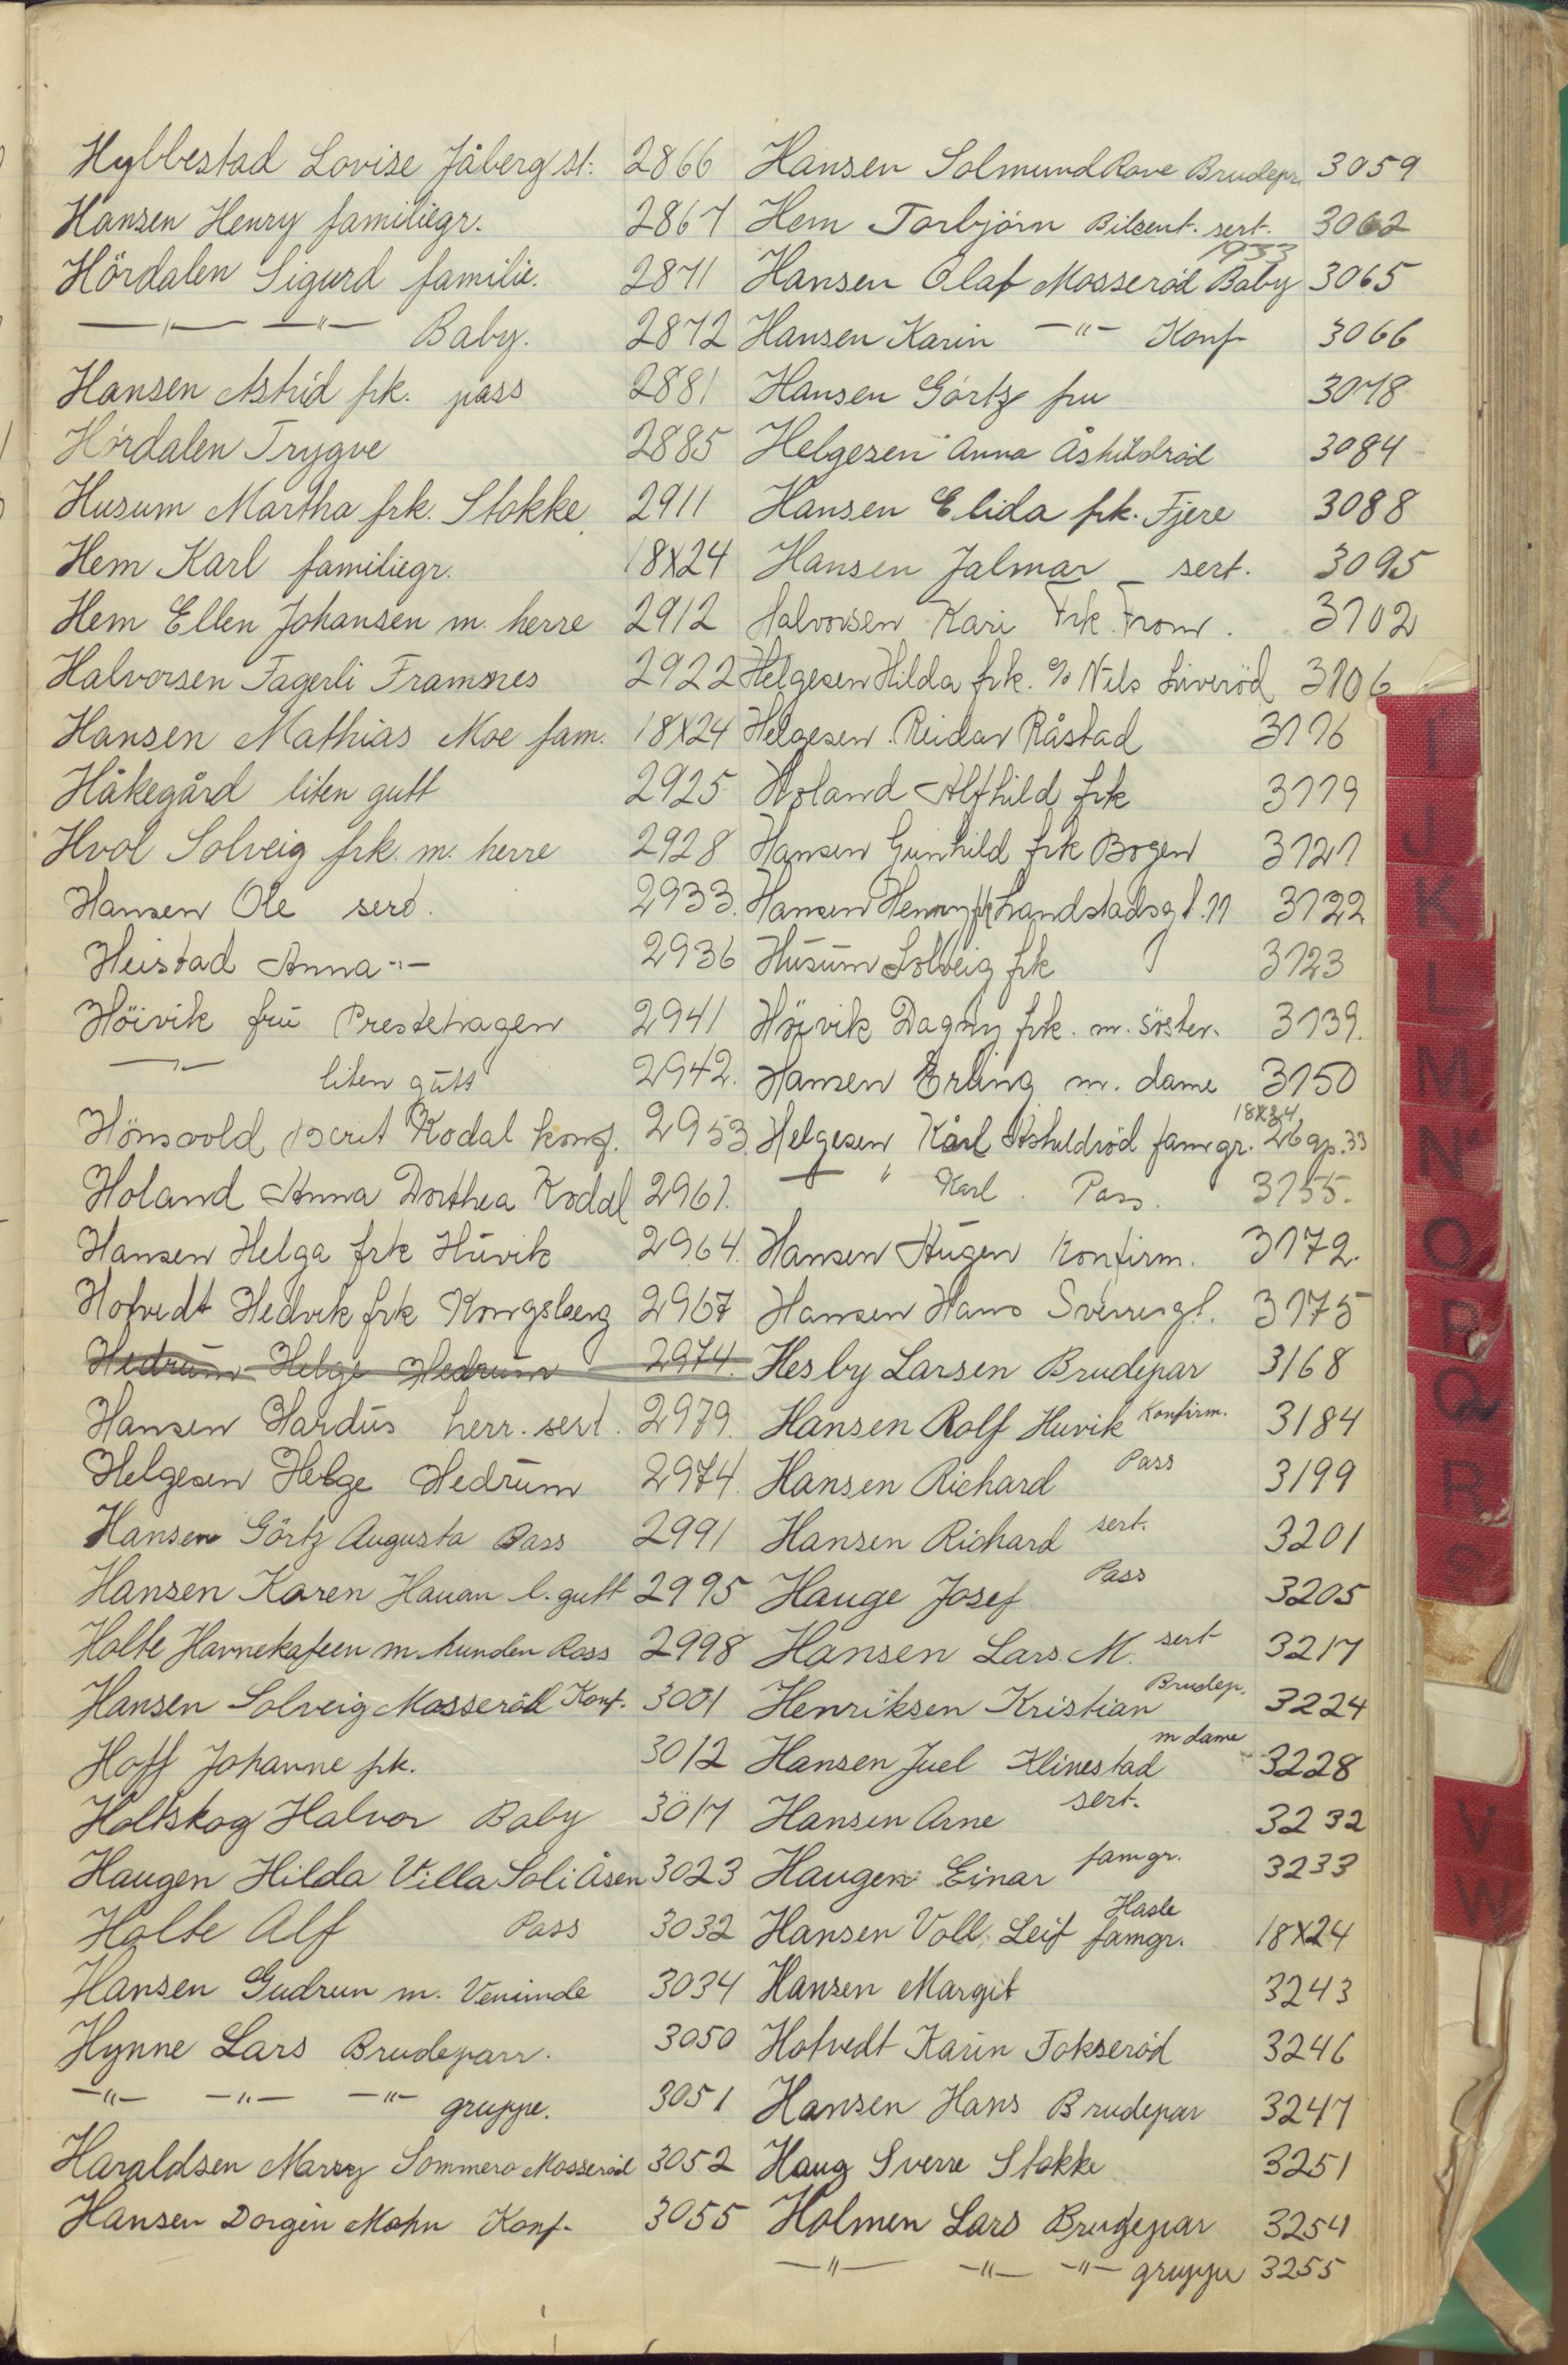 Hybbestad Lovise Jåberg st. 2866
Hansen Henry familiegr. 2867
Hördalen Sigurd familie. 2871
—"— —"— Baby. 2872
Hansen Astrid frk. pass 2881
Hördalen Trygve 2885
Husum Martha frk. Stokke 2911
Hem Karl familiegr. 18X24
Hem Ellen Johansen m. herre 2912
Halvorsen Fagerli Framnes 2922
Hansen Mathias Moe fam. 18X24
Håkegård liten gutt 2925
Hvol Solveig frk. m. herre 2928
Hansen Ole sert. 2933.
Heistad Anna -"- 2936
Höivik frū Prestehagen 2941
—"— liten gūtt 2942.
Hönsvold Berit Kodal konf. 2953.
Holand Anna Dorthea Kodal 2961.
Hansen Helga frk Hūvik 2964.
Hofvedt Hedvik frk Kongsberg 2967
Hedrūm Helge Hedrūm 2974.
Hansen Hardūs herr. sert. 2979.
Helgesen Helge Hedrūm 2974.
Hansen Görtz Augusta Pass 2991
Hansen Karen Hauan l. gutt 2995
Holte Havnekafeen m. hunden Rass 2998
Hansen Solveig Mosseröd Konf. 3001
Hoff Johanne frk. 3012
Holtskog Halvor Baby 3017
Haugen Hilda Villa Soli Åsen 3023
Holte Alf Pass 3032
Hansen Gudrun m. Veninde 3034
Hynne Lars Brudeparr. 3050
—"— —"— —"— gruppe. 3051
Haraldsen Marry Sommero Mosseröd 3052
Hansen Dorgin Mohn Konf. 3055
Hansen Solmund Rove Brudepr. 3059
Hem Torbjörn Bilsent. sert. 3062
1933
Hansen Olaf Mosseröd Baby 3065
Hansen Karin —"— Konf 3066
Hansen Görtz fru 3078
Helgesen Anna Åshildröd 3084
Hansen Elida frk. Fjere 3088
Hansen Jalmar — sert. 3095
Halvorsen Kari Frk. From. 3102
Helgesen Hilda frk. % Nils Liveröd 3106
Helgesen Reidar Råstad 3116
Holand Alfhild frk 3119
Hansen Gunhild frk Bogen 3121
Hansen Henny frk Landstadsgt. 11 3122
Hūsūm Solveig frk 3123
Höivik Dagny frk. m. söster. 3139.
Hansen Erling m. dame 3150
18X24
Helgesen Karl Åshildröd famgr. 26 ap. 33
—"— Karl Pass. 3155.
Hansen Haugen Konfirm. 3172.
Hansen Hans Sverresgt. 3175
Hesby Larsen Brudepar 3168
Hansen Rolf Huvik Konfirm. 3184
Hansen Richard Pass 3199
Hansen Richard sert. 3201
Hauge Josef Pass 3205
Hansen Lars M. sert 3217
Henriksen Kristian Brudep. 3224
Hansen Juel Klinestad m dame 3228
Hansen Arne sert. 3232
Haugen Einar famgr. 3233
Hasle
Hansen Voll, Leif famgr. 18X24
Hansen Margit 3243
Hofvedt Karin Fokseröd 3246
Hansen Hans Brudepar 3247
Haug Sverre Stokke 3251
Holmen Lars Brudepar 3254
—"— —"— —"— gruppe 3255
I
J
K
L
M
N
O
P
Q
R
S
V
W